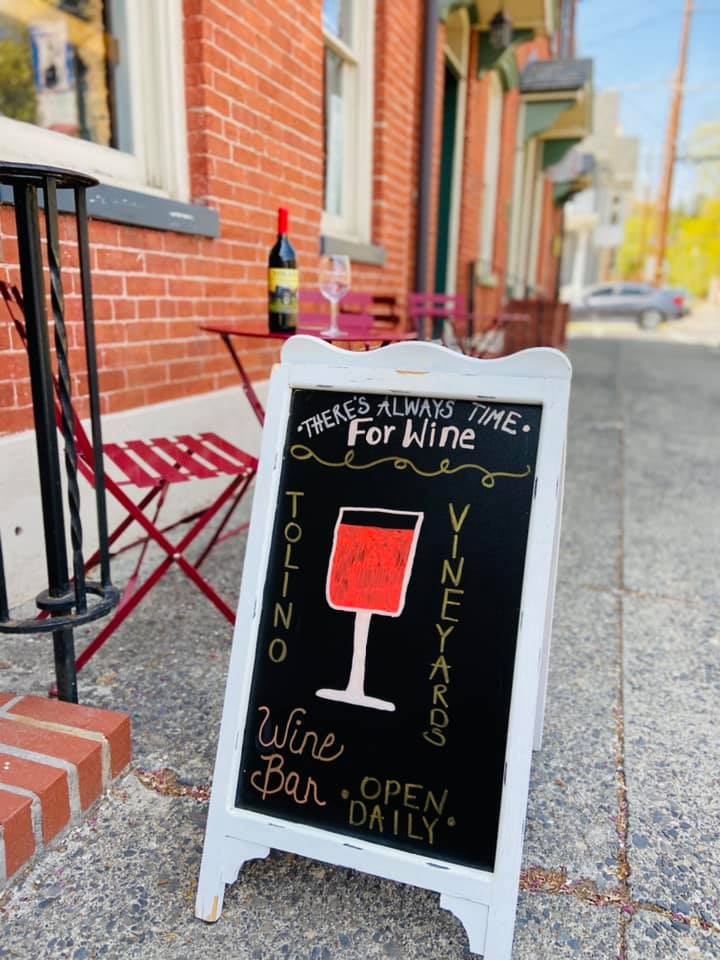 •THERE'S ALWAYS TIME•
For Wine
TOLINO
VINEYARDS
Wine
Bar
•OPEN
DAILY•